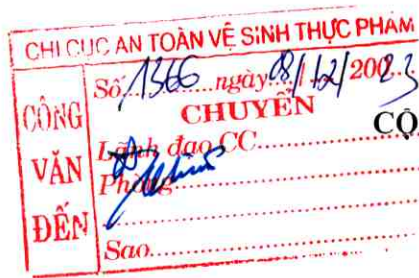 CHI CỤC AN TOÀN VỆ SINH THỰC PHẨM
CÔNG VĂN ĐẾN
Số 1366 ngày 08/12/2023
CHUYỂN
Lãnh đạo CC
Phòng
Sao
CỘ